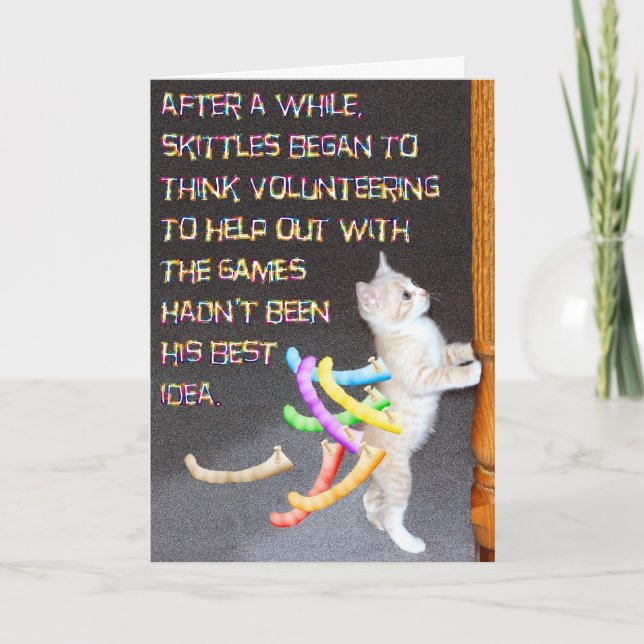 AFTER A WHILE,
SKITTLES BEGAN TO
THINK VOLUNTEERING
TO HELP OUT WITH
THE GAMES
HADN'T BEEN
HIS BEST
IDEA.